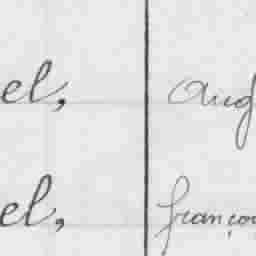 el, Aug
el, françoi